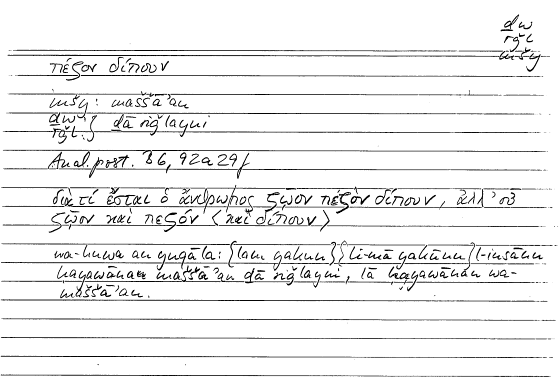 ḏw
rǧl
mšy
πέζον δίπουν
mšy: maššāʾan
ḏw
rǧl } ḏā riǧlayni
Anal. post. B 6, 92a29f
διὰ τί ἔσται ὁ ἄνθρωπος ζῷον πέζὸν δίπουν, ἀλλ' οὐ
ζῷον καὶ πεζόν <καὶ δίπουν>
wa-huwa an yuqāla: {lam yakun} {li-mā yakūnu} l-insānu
ḥayawānan maššāʾan ḏā riǧlayni, lā ḥayawānan wa-
maššāʾan.